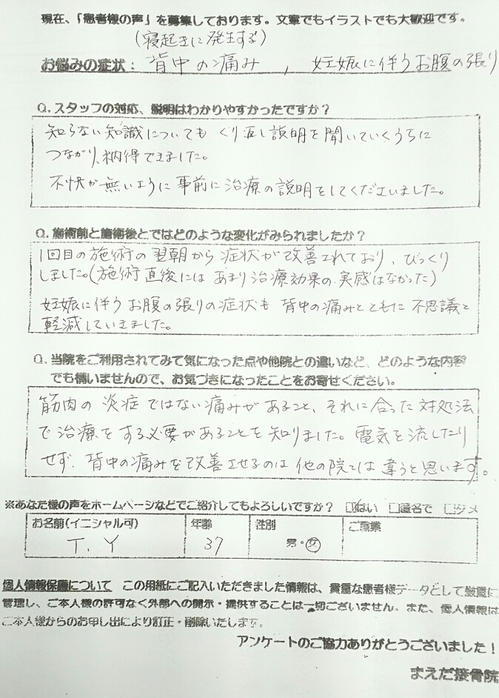 現在、「患者様の声」を募集しております。文章でもイラストでも大歓迎です。
(寝起きに発生する)
お悩みの症状: 背中の痛み , 妊娠に伴うお腹の張り
Q.スタッフの対応、説明はわかりやすかったですか?
知らない知識についてもくり返し説明を聞いていくうちに
つながり、納得できました。
不快が無いように事前に治療の説明をしてくださいました。
Q.施術前と施術後とではどのような変化がみられましたか?
1回目の施術の翌朝から症状が改善されており、びっくり
しました。(施術直後にはあまり治療効果の実感はなかった)
妊娠に伴うお腹の張りの症状も背中の痛みとともに不思議と
軽減していきました。
Q.当院をご利用されてみて気になった点や他院との違いなど、どのような内容
でも構いませんので、お気づきになったことをお寄せください。
筋肉の炎症ではない痛みがあること、それに合った対処法
で治療をする必要があることを知りました。電気を流したり
せず、背中の痛みを改善させるのは他の院とは違うと思います。
※あなた様の声をホームページなどでご紹介してもよろしいですか? □はい □匿名で □ダメ
お名前(イニシャル可) 年齢 性別 ご職業
T.Y 37 男・女
個人情報保護について この用紙にご記入いただきました情報は、貴重な患者様データとして厳重に
管理し、ご本人様の許可なく外部への開示・提供することは一切ございません。また、個人情報は
ご本人様からのお申し出により訂正・削除いたします。
アンケートのご協力ありがとうございました!
まえだ接骨院